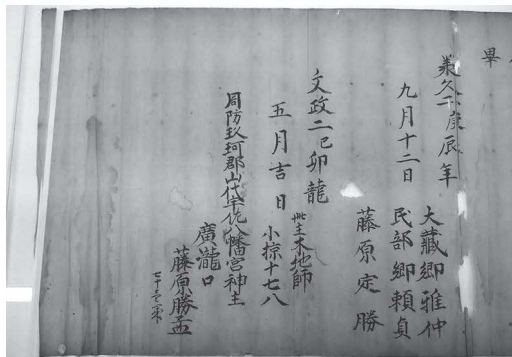 畢
承久二庚辰年
九月十二日
大藏卿雅仲
民部卿頼貞
藤原定勝
文政二己卯龍
五月吉日
世主木地師
小掠十七八
周防玖珂郡山代宇佐八幡宮神主
廣瀧口
藤原勝孟